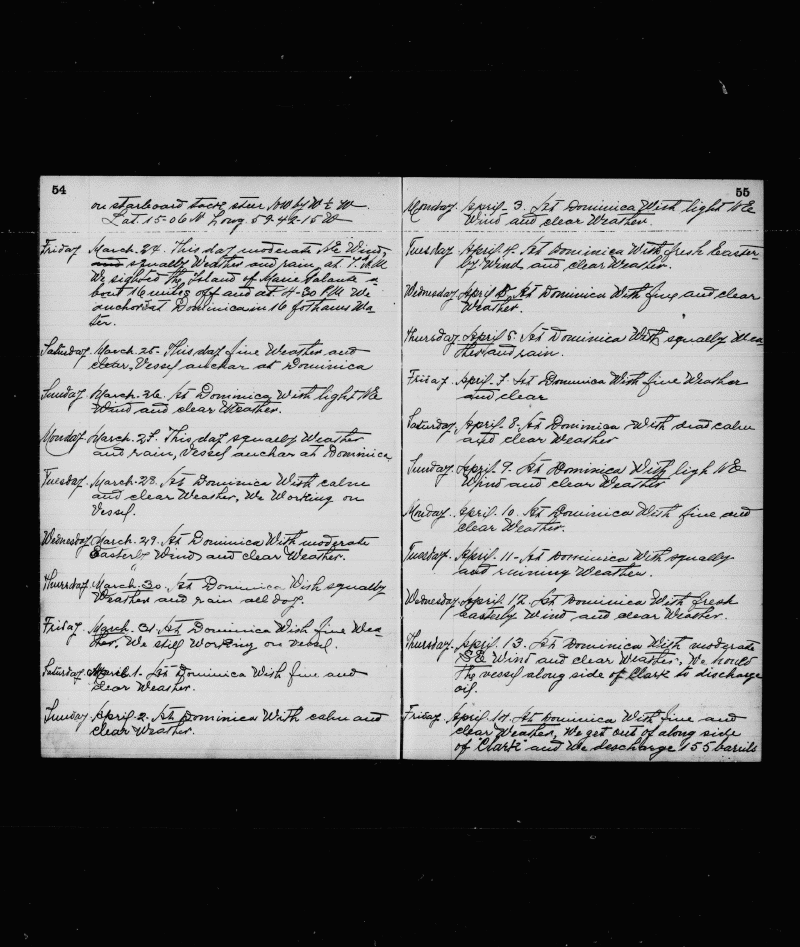 54
on starboard tack steer NW by W ½ W
Lat. 15-06 N Long. 59-42-15 W
Friday March. 24. This day moderate N.E. Wind,
squally Weather and rain, at 7. A.M
We sighted the Island of Marie Galante a-
bout 16 miles off and at 4-30 P.M. We
anchored at Dominica in 16 fothams Wa-
ter.
Saturday March. 25. This day fine Weather and
clear, Vessel anchar at Dominica
Sunday March. 26. At Dominica With light NE
Wind and clear Weather.
Monday March. 27. This day squally Weather
and rain, Vessel anchar at Dominica,
Tuesday. March. 28. At Dominica With calm
and clear Weather, We Working on
Vessel.
Wednesday March. 29. At Dominica With moderate
Easterly Wind and clear Weather.
Thursday March. 30. At Dominica With squally
Weather and rain all day.
Friday March. 31. At Dominica With fine Wea-
ther, We still Working on vessel.
Saturday April. 1. At Dominica With fine and
clear Weather.
Sunday April. 2. At Dominica With calm and
clear Weather.
55
Monday. April. 3. At Dominica With light NE
Wind and clear Weather.
Tuesday April. 4. At Dominica With fresh Easter-
ly Wind and clear Weather.
Wednesday April 5. At Dominica With fine and clear
Weather.
Thursday April 6. At Dominica With squally Wea-
ther and rain.
Friday April. 7. At Dominica With fine Weather
and clear
Saturday. April. 8. At Dominica With dead calm
and clear Weather
Sunday April. 9. At Dominica With ligh NE
Wind and clear Weather
Monday. April. 10. At Dominica With fine and
clear Weather.
Tuesday. April. 11. At Dominica With squally
and raining Weather.
Wednesday April. 12. At Dominica With fresh
easterly Wind and clear Weather.
Thursday. April. 13. At Dominica With moderate
SE Wind and clear Weather, We hould
the vessel along side of Clark to discharge
oil.
Friday. April 14. At Dominica With fine and
clear Weather, We get out of along side
of "Clark" and We descharge 155 barrils